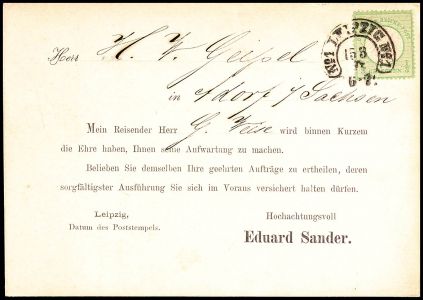 Nº1 LEIPZIG Nº1
15 8
Herr H. W. Geipel
in Adorf i/ Sachsen
Mein Reisender Herr G. Weise wird binnen Kurzem
die Ehre haben, Ihnen seine Aufwartung zu machen.
Belieben Sie demselben Ihre geehrten Aufträge zu ertheilen, deren
sorgfältigster Ausführung Sie sich im Voraus versichert halten dürfen.
Leipzig,
Datum des Poststempels.
Hochachtungsvoll
Eduard Sander.